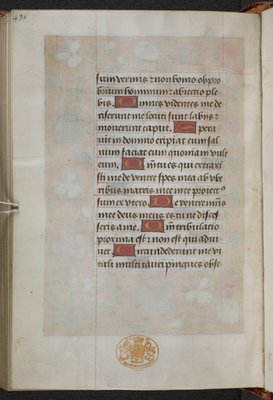 430
sum vermis ⁊ non homo obpro
brium hominum ⁊ abiectio ple
bis Omnes videntes me de
riserunt me locuti sunt labijs ⁊
mouerunt caput. Spera
uit in domino eripiat eum sal
uum faciat eum quoniam vult
eum. Qm̄ tu es qui extraxi
sti me de ventre spes mea ab vbe
ribus matris mee in te proiect9
sum ex vtero. De ventre mr̄is
mee deus meus es tu ne discess
seris a me. Qm̄ tribulatio
proxima est ⁊ non est qui adiu
uet Circundederunt me vi
tuli multi tauri pingues obse